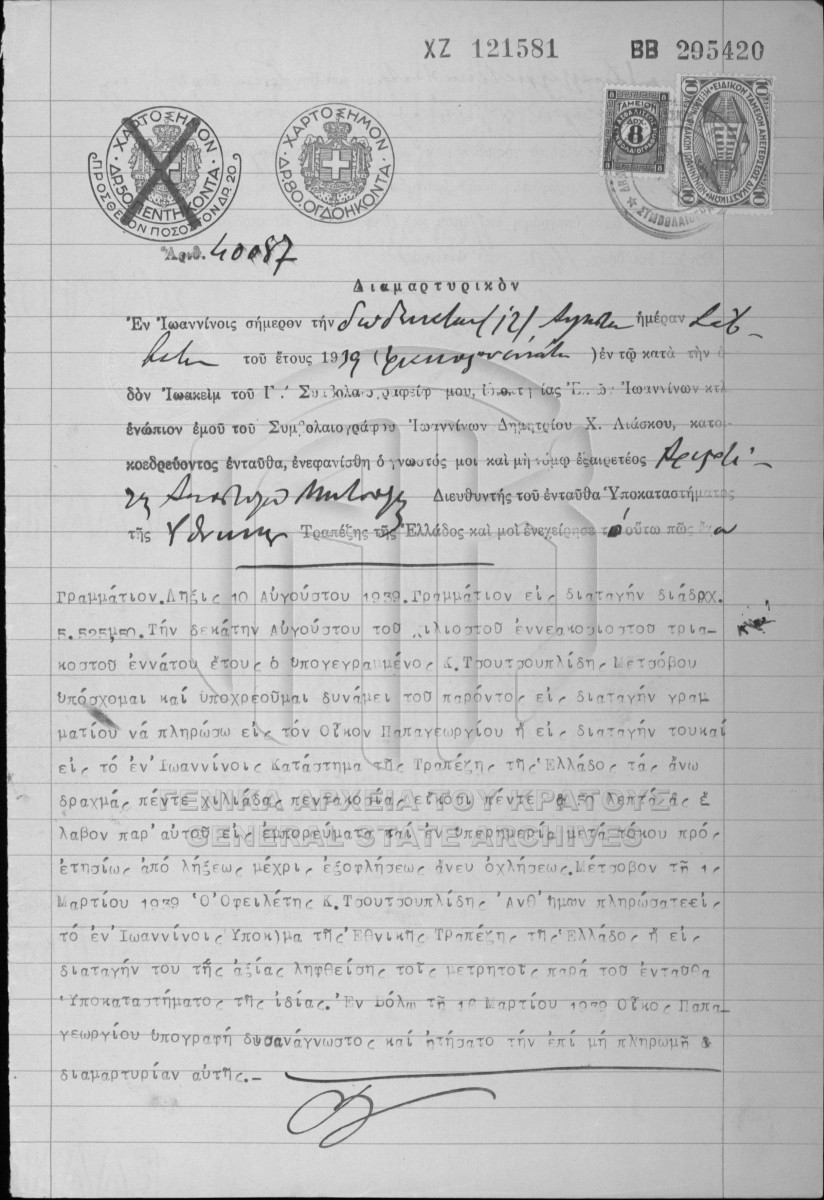 ΧΖ 121581 ΒΒ 295420
ΧΑΡΤΟΣΗΜΟΝ
ΔΡ.50.ΠΕΝΤΗΚΟΝΤΑ
ΠΡΟΣΘΕΤΟΝ ΠΟΣΟΣΤΟΝ ΔΡ. 20
ΧΑΡΤΟΣΗΜΟΝ
ΔΡ.80.ΟΓΔΟΗΚΟΝΤΑ
ΤΑΜΕΙΟΝ
ΔΡΧ
8
10 10
Ἀριθ. 40087
Διαμαρτυρικὸν
Ἐν Ἰωαννίνοις σήμερον τὴν δωδεκάτην (12) Αὐγούστου ἡμέραν Σάβ-
βατον τοῦ ἔτους 1939 ( ) ἐν τῷ κατὰ τὴν ὁ
δὸν Ἰωακεὶμ τοῦ Γ΄ Συμβολαιογραφείῳ μου, ἰδιοκτησίας Ἰωαννίνων κτλ
ἐνώπιον ἐμοῦ τοῦ Συμβολαιογράφου Ἰωαννίνων Δημητρίου Χ. Λιάσκου, κατοι
κοεδρεύοντος ἐνταῦθα, ἐνεφανίσθη ὁ γνωστός μοι καὶ μὴ νόμῳ ἐξαιρετέος Ἀριστεί-
δης Διευθυντὴς τοῦ ἐνταῦθα Ὑποκαταστήματος
τῆς Ἐθνικῆς Τραπέζης τῆς Ἑλλάδος καὶ μοὶ ἐνεχείρησε τὸ οὕτω πῶς ἔχον
Γραμμάτιον. Λῆξις 10 Αὐγούστου 1939. Γραμμάτιον εἰς διαταγὴν διάδραχ.
5.525,50. Τὴν δεκάτην Αὐγούστου τοῦ χιλιοστοῦ ἐννεακοσιοστοῦ τρια-
κοστοῦ ἐννάτου ἔτους ὁ ὑπογεγραμμένος Κ. Τσουτσουπλίδης Μετσόβου
ὑπόσχομαι καὶ ὑποχρεοῦμαι δυνάμει τοῦ παρόντος εἰς διαταγὴν γραμ
ματίου νά πληρώσω εἰς τόν Οἶκον Παπαγεωργίου ἤ εἰς διαταγήν τουκαί
εἰς τό ἐν Ἰωαννίνοις Κατάστημα τῆς Τραπέζης τῆς Ἑλλάδος τάς ἄνω
δραχμάς πέντε χιλιάδας πεντακοσίας εἴκοσι πέντε & 50 λεπτά ἅς ἔ
λαβον παρ' αὐτοῦ εἰς ἐμπορεύματα καί ἐν ὑπερημερίᾳ μετά τόκου πρός
ἐτησίως ἀπό λήξεως μέχρις ἐξοφλήσεως ἄνευ ὀχλήσεως. Μέτσοβον τῇ 1ς
Μαρτίου 1939 Ὁ Ὀφειλέτης Κ. Τσουτσουπλίδης Ἀνθ' ἡμῶν πληρώσατε εἰς
τό ἐν Ἰωαννίνοις Ὑποκ)μα τῆς Ἐθνικῆς Τραπέζης τῆς Ἑλλάδος ἤ εἰς
διαταγήν του τῆς ἀξίας ληφθείσης τοῖς μετρητοῖς παρά τοῦ ἐνταῦθα
Ὑποκαταστήματος τῆς ἰδίας. Ἐν Βόλῳ τῇ Μαρτίου 1939 Οἶκος Παπα-
γεωργίου ὑπογραφή δυσανάγνωστος καί ᾐτήσατο τήν ἐπί μή πληρωμῇ &
διαμαρτυρίαν αὐτῆς.-
ΓΕΝΙΚΑ ΑΡΧΕΙΑ ΤΟΥ ΚΡΑΤΟΥΣ
GENERAL STATE ARCHIVES